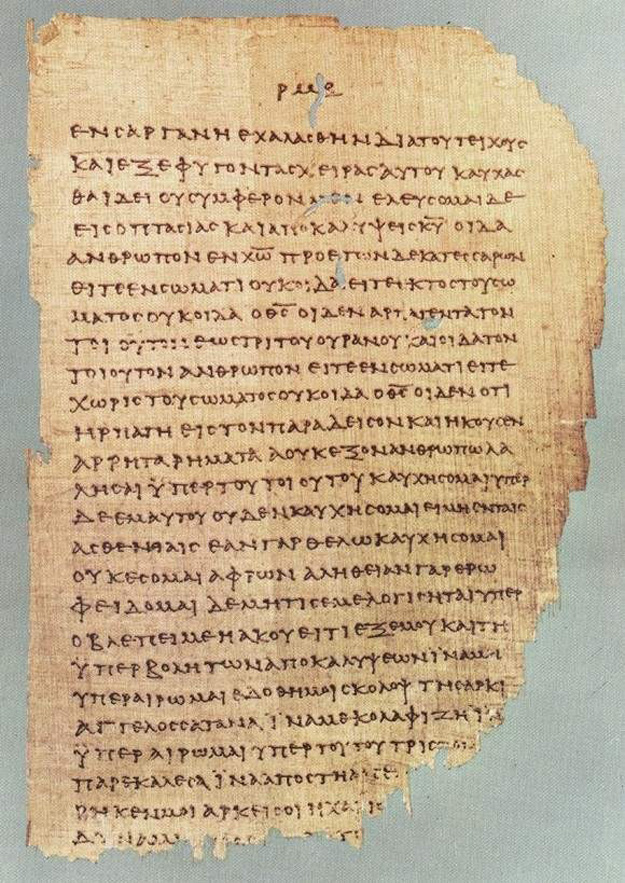 ΕΝϹΑΡΓΑΝΗΕΧΑΛΑϹΘΗΝΔΙΑΤΟΥΤΕΙΧΟΥϹ
ΚΑΙΕΞΕΦΥΓΟΝΤΑϹΧΕΙΡΑϹΑΥΤΟΥΚΑΥΧΑϹ
ΘΑΙΔΕΙΟΥϹΥΜΦΕΡΟΝΜΕΝΕΛΕΥϹΟΜΑΙΔΕ
ΕΙϹΟΠΤΑϹΙΑϹΚΑΙΑΠΟΚΑΛΥΨΕΙϹΚ̅Υ̅ΟΙΔΑ
ΑΝΘΡΩΠΟΝΕΝΧ̅Ω̅ΠΡΟΕΤΩΝΔΕΚΑΤΕϹϹΑΡΩΝ
ΕΙΤΕΕΝϹΩΜΑΤΙΟΥΚΟΙΔΑΕΙΤΕΕΚΤΟϹΤΟΥϹΩ
ΜΑΤΟϹΟΥΚΟΙΔΑΟΘ̅Ϲ̅ΟΙΔΕΝΑΡΠΑΓΕΝΤΑΤΟΝ
ΤΟΙΟΥΤΟΝΕΩϹΤΡΙΤΟΥΟΥΡΑΝΟΥΚΑΙΟΙΔΑΤΟΝ
ΤΟΙΟΥΤΟΝΑΝΘΡΩΠΟΝΕΙΤΕΕΝϹΩΜΑΤΙΕΙΤΕ
ΧΩΡΙϹΤΟΥϹΩΜΑΤΟϹΟΥΚΟΙΔΑΟΘ̅Ϲ̅ΟΙΔΕΝΟΤΙ
ΗΡΠΑΓΗΕΙϹΤΟΝΠΑΡΑΔΕΙϹΟΝΚΑΙΗΚΟΥϹΕΝ
ΑΡΡΗΤΑΡΗΜΑΤΑΑΟΥΚΕΞΟΝΑΝΘΡΩΠΩΛΑ
ΛΗϹΑΙΫΠΕΡΤΟΥΤΟΙΟΥΤΟΥΚΑΥΧΗϹΟΜΑΙΥΠΕΡ
ΔΕΕΜΑΥΤΟΥΟΥΔΕΝΚΑΥΧΗϹΟΜΑΙΕΙΜΗΕΝΤΑΙϹ
ΑϹΘΕΝΙΑΙϹΕΑΝΓΑΡΘΕΛΩΚΑΥΧΗϹΟΜΑΙ
ΟΥΚΕϹΟΜΑΙΑΦΡΩΝΑΛΗΘΕΙΑΝΓΑΡΕΡΩ
ΦΕΙΔΟΜΑΙΔΕΜΗΤΙϹΕΜΕΛΟΓΙϹΗΤΑΙΥΠΕΡ
ΟΒΛΕΠΕΙΜΕΗΑΚΟΥΕΙΤΙΕΞΕΜΟΥΚΑΙΤΗ
ΫΠΕΡΒΟΛΗΤΩΝΑΠΟΚΑΛΥΨΕΩΝΪΝΑΜΗ
ΥΠΕΡΑΙΡΩΜΑΙΕΔΟΘΗΜΟΙϹΚΟΛΟΨΤΗϹΑΡΚΙ
ΑΓΓΕΛΟϹϹΑΤΑΝΑΪΝΑΜΕΚΟΛΑΦΙΖΗΪΝΑ
ΫΠΕΡΑΙΡΩΜΑΙΥΠΕΡΤΟΥΤΟΥΤΡΙϹ
ΠΑΡΕΚΑΛΕϹΑΪΝΑΑΠΟϹΤΗ
ΡΗΚΕΝΜΟΙΑΡΚΕΙϹΟΙΗΧΑΡΙϹ
ΔΥΝΑΜΙϹ